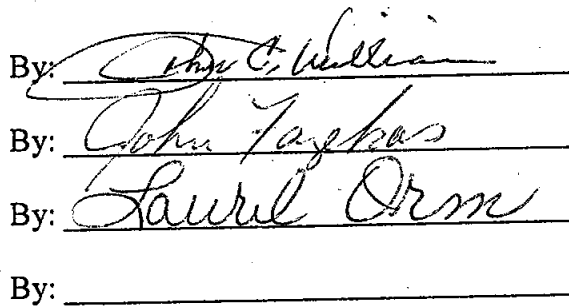 By: John C. William
By: John Fazekas
By: Laurel Orm
By: